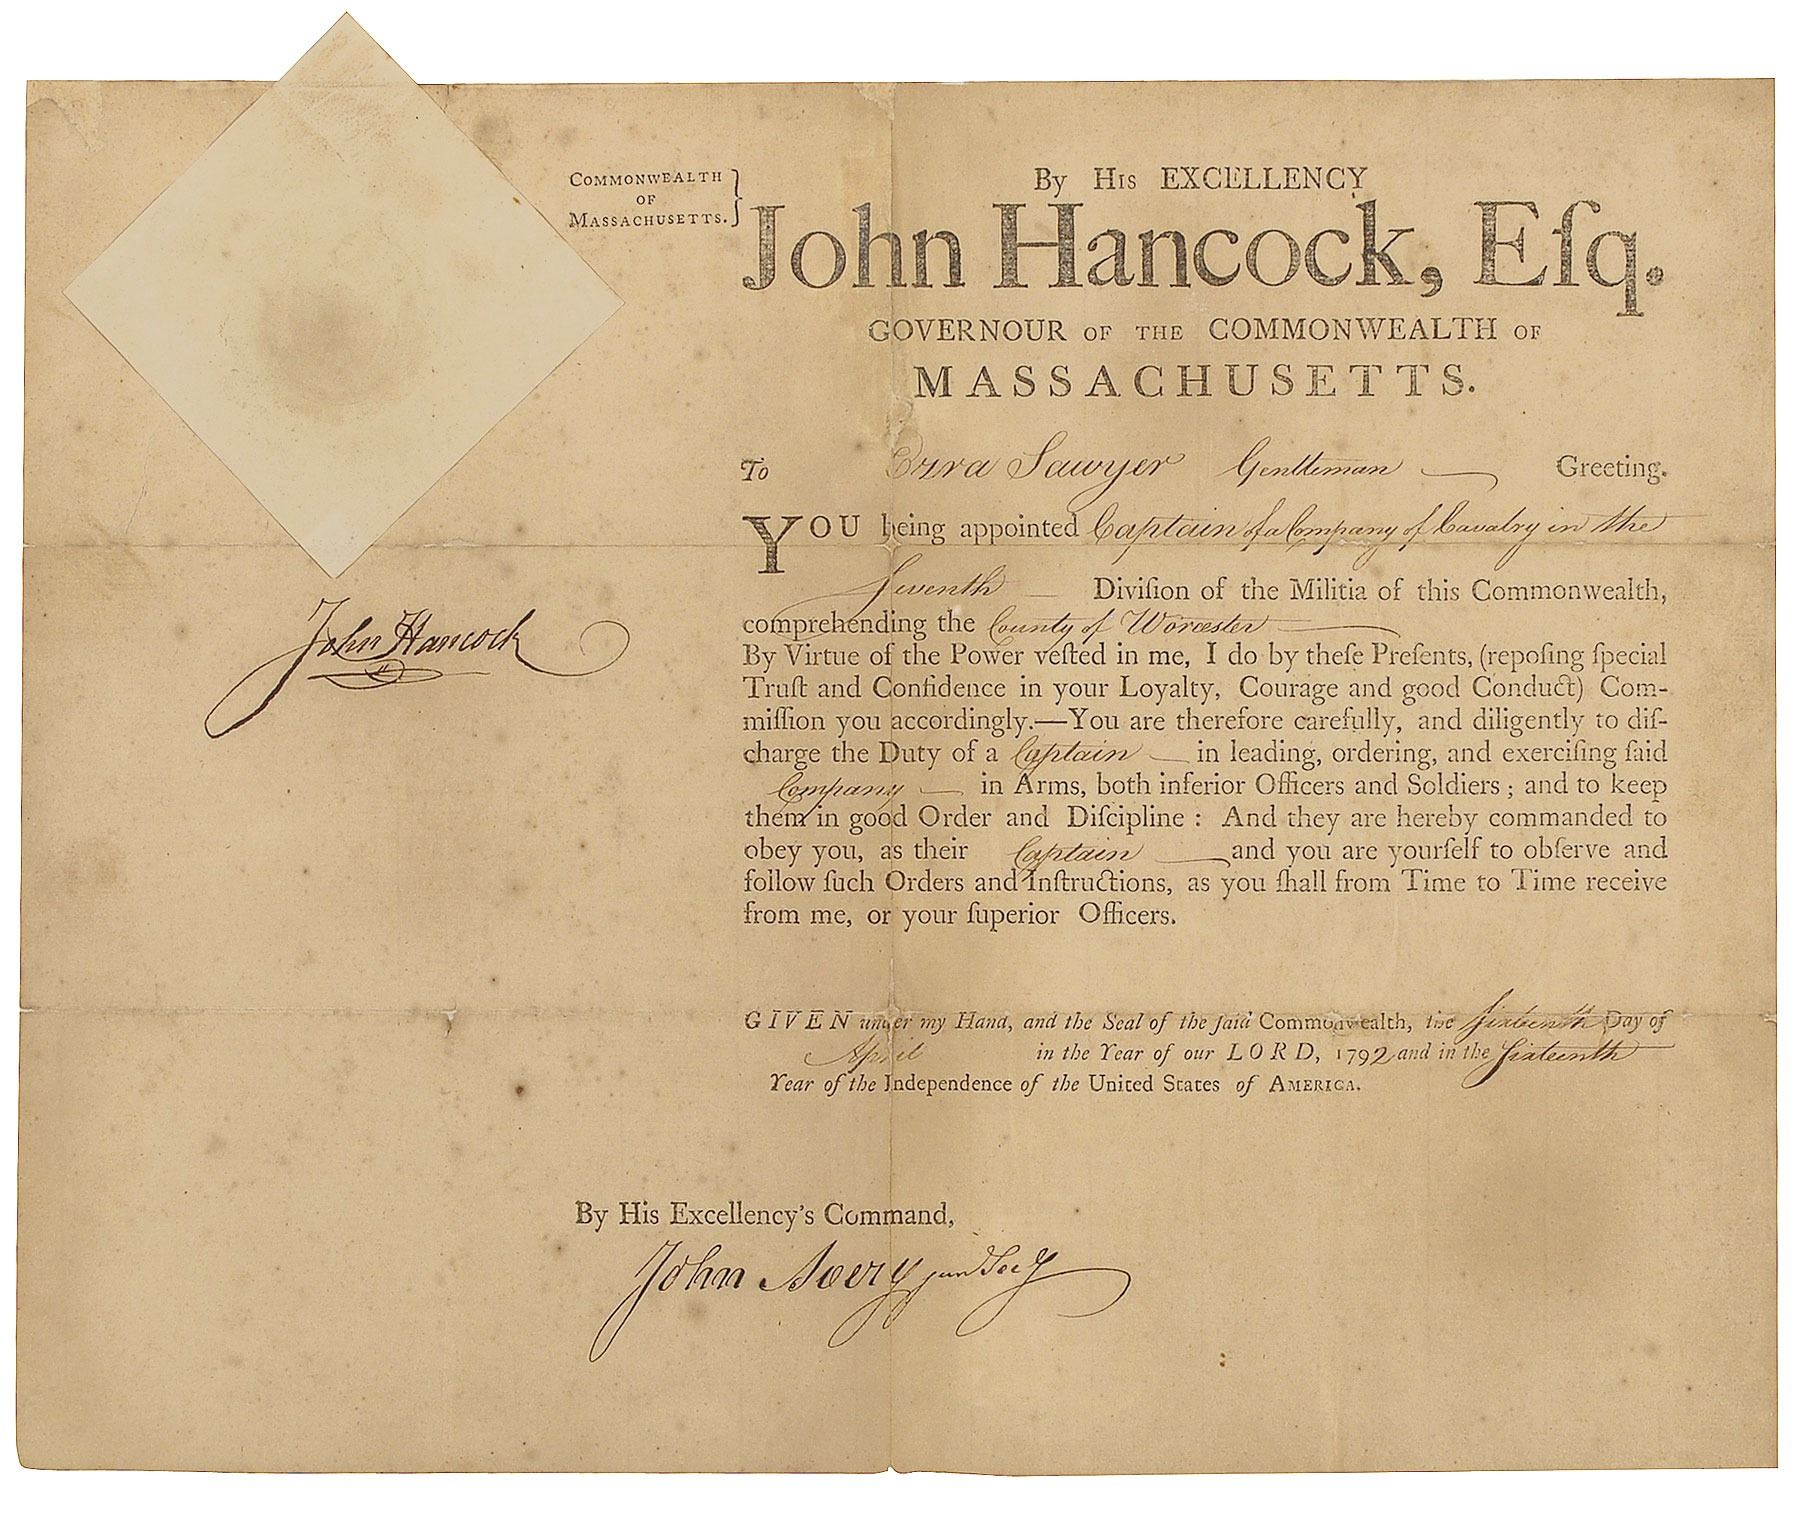 COMMONWEALTH
OF
MASSACHUSETTS.
By His EXCELLENCY
John Hancock, Eſq.
GOVERNOUR OF THE COMMONWEALTH OF
MASSACHUSETTS.
To Ezra Sawyer Gentleman Greeting.
YOU being appointed Captain of a Company of Cavalry in the
Seventh Diviſion of the Militia of this Commonwealth,
comprehending the County of Worcester
By Virtue of the Power veſted in me, I do by theſe Preſents, (repoſing ſpecial
Truſt and Confidence in your Loyalty, Courage and good Conduct) Com-
miſſion you accordingly.—You are therefore carefully, and diligently to diſ-
charge the Duty of a Captain in leading, ordering, and exerciſing ſaid
Company in Arms, both inferior Officers and Soldiers; and to keep
them in good Order and Diſcipline: And they are hereby commanded to
obey you, as their Captain and you are yourſelf to obſerve and
follow ſuch Orders and Inſtructions, as you ſhall from Time to Time receive
from me, or your ſuperior Officers.
John Hancock
GIVEN under my Hand, and the Seal of the ſaid Commonwealth, the Sixteenth Day of
April in the Year of our LORD, 1792 and in the Sixteenth
Year of the Independence of the United States of AMERICA.
By His Excellency's Command,
John Avery jun Secy